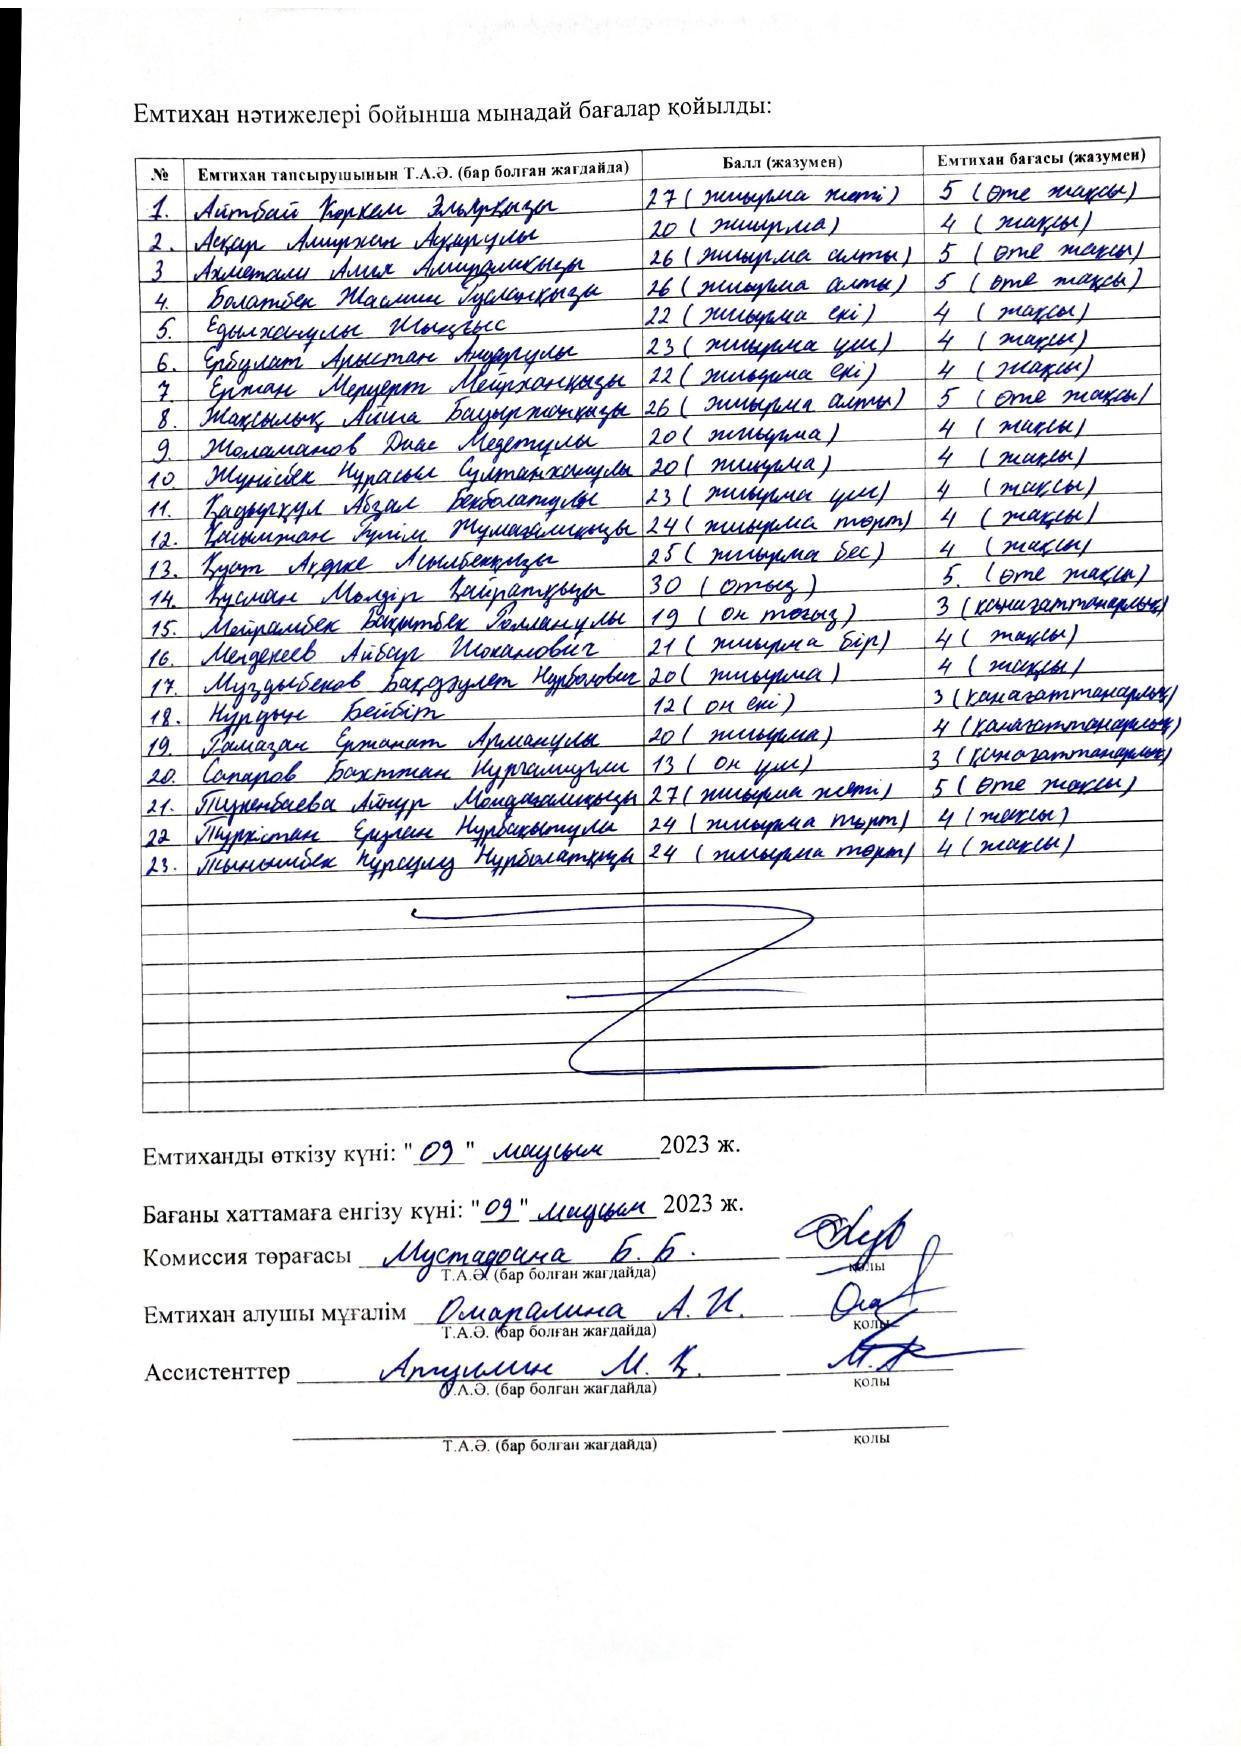 Емтихан нәтижелері бойынша мынадай бағалар қойылды:
№ Емтихан тапсырушының Т.А.Ә. (бар болған жағдайда) Балл (жазумен) Емтихан бағасы (жазумен)
1. Айтбай Көркем Эльярқызы 27 (жиырма жеті) 5 (өте жақсы)
2. Асқар Амирхан Асқарұлы 20 (жиырма) 4 (жақсы)
3 Ахметали Алия Амиралиқызы 26 (жиырма алты) 5 (өте жақсы)
4. Болатбек Жасмин Русланқызы 26 (жиырма алты) 5 (өте жақсы)
5. Едылханұлы Шыңғыс 22 (жиырма екі) 4 (жақсы)
6. Ербулат Арыстан 23 (жиырма үш) 4 (жақсы)
7 Ержан Меруерт Мейрханқызы 22 (жиырма екі) 4 (жақсы)
8. Жақсылық Айша Бауыржанқызы 26 (жиырма алты) 5 (өте жақсы)
9. Жоламанов Диас Медетұлы 20 (жиырма) 4 (жақсы)
10. Жүнісбек Нұрасыл Сұлтанханұлы 20 (жиырма) 4 (жақсы)
11. Қадырқұл Абзал Бекболатұлы 23 (жиырма үш) 4 (жақсы)
12. Қасымжан Гүлім Жұмағалиқызы 24 (жиырма төрт) 4 (жақсы)
13. Қуат Ақерке Асылбекқызы 25 (жиырма бес) 4 (жақсы)
14. Құсман Мөлдір Қайратқызы 30 (отыз) 5. (өте жақсы)
15. Мейрамбек Бақытбек Голланұлы 19 (он тоғыз) 3 (қанағаттанарлық)
16. Мендекеев Айбар Шоканович 21 (жиырма бір) 4 (жақсы)
17. Мұздыбеков Бақдәулет Нурболович 20 (жиырма) 4 (жақсы)
18. Нұрдың Бейбіт 12 (он екі) 3 (қанағаттанарлық)
19. Рамазан Ержанат Арманұлы 20 (жиырма) 4 (қанағаттанарлық)
20. Сапаров Бахтжан 13 (он үш) 3 (қанағаттанарлық)
21. Түкенбаева Айнұр Молдағалиқызы 27 (жиырма жеті) 5 (өте жақсы)
22 Түркістан Ерұлан Нұрбақытұлы 24 (жиырма төрт) 4 (жақсы)
23. Тынышбек Нұрсұлу Нұрболатқызы 24 (жиырма төрт) 4 (жақсы)
Емтиханды өткізу күні: "09" маусым 2023 ж.
Бағаны хаттамаға енгізу күні: "09" маусым 2023 ж.
Комиссия төрағасы Мустадоана Б. Б.
Т.А.Ә. (бар болған жағдайда) қолы
Емтихан алушы мұғалім Омаралина А. И.
Т.А.Ә. (бар болған жағдайда) қолы
Ассистенттер М. Қ.
Т.А.Ә. (бар болған жағдайда) қолы
Т.А.Ә. (бар болған жағдайда) қолы